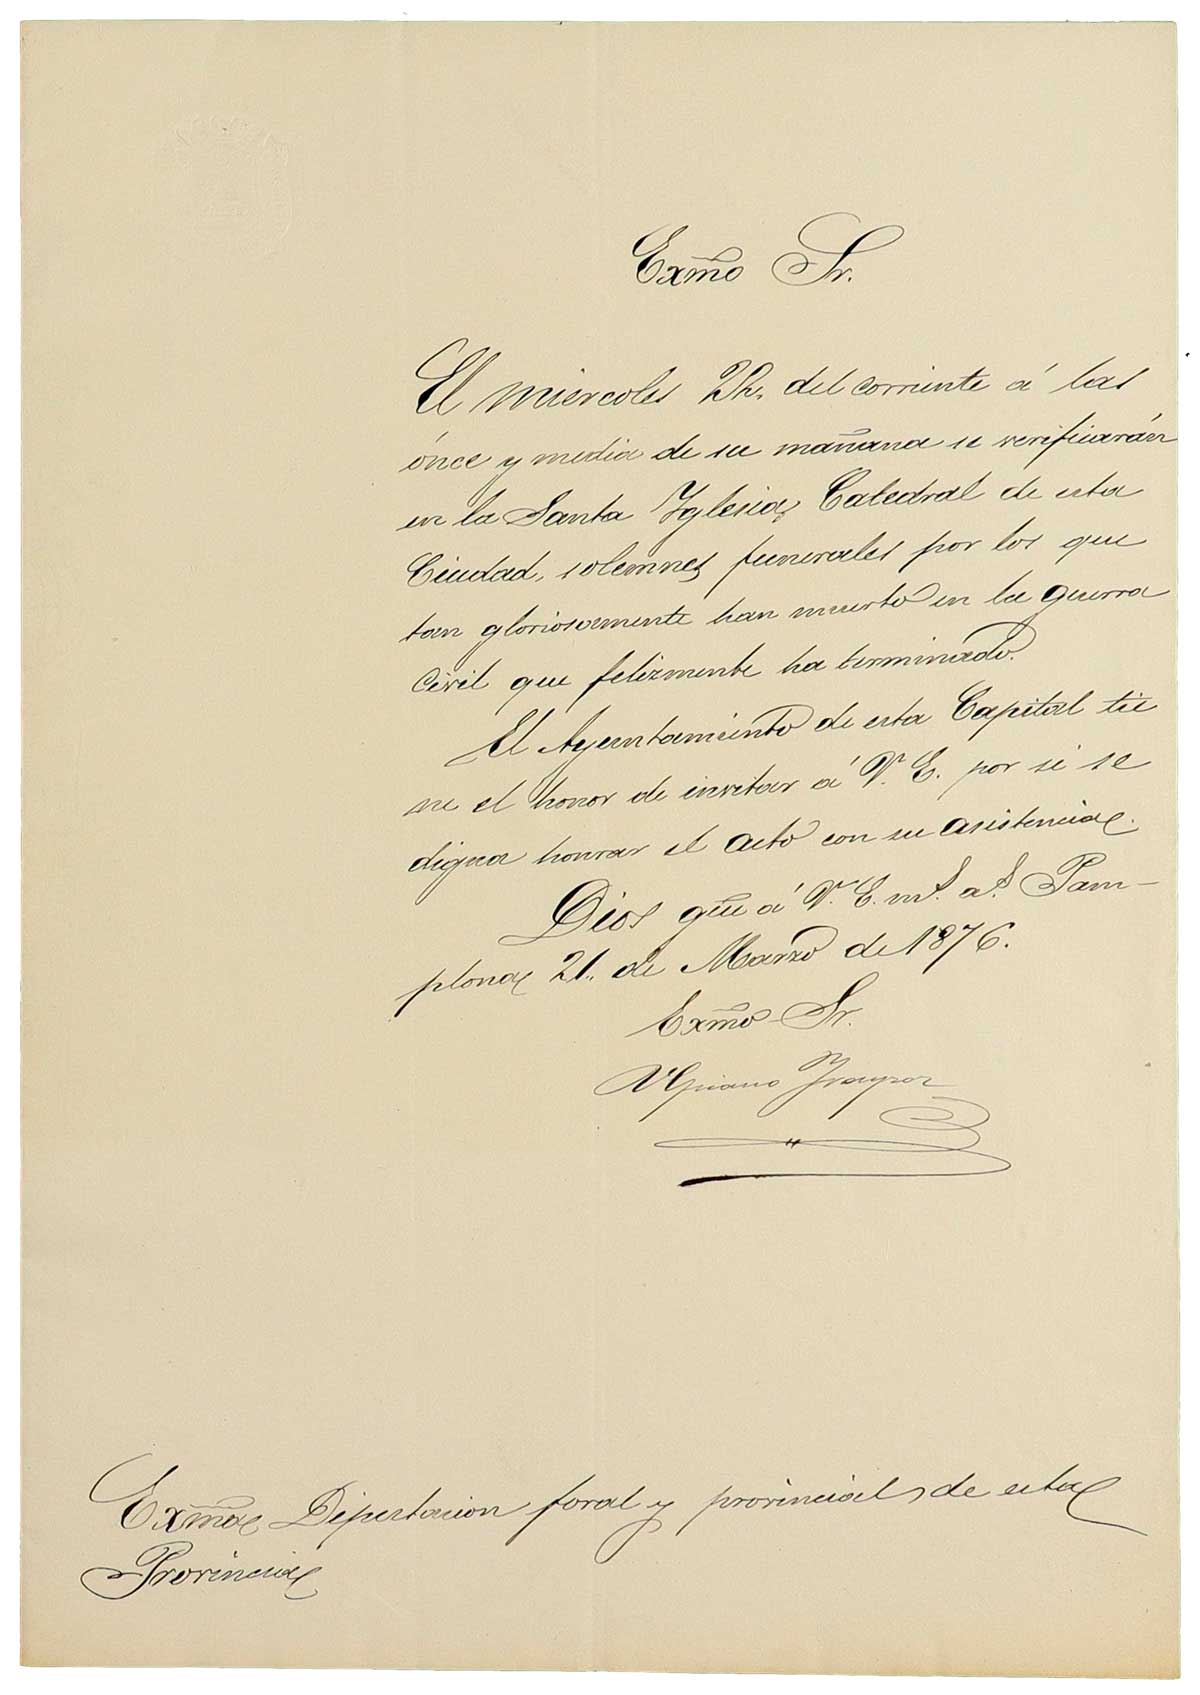 Exmo Sr.
El miercoles 22, del corriente á las
ónce y media de su mañana se verificarán
en la Santa Yglesia Catedral de esta
Ciudad, solemnes funerales por los que
tan gloriosamente han muerto en la guerra
civil que felizmente ha terminado.
El Ayuntamiento de esta Capital tie
ne el honor de invitar á V. E. por si se
digna honrar el acto con su asistencia.
Dios gue á V. E. ms. as. Pam-
plona 21. de Marzo de 1876.
Exmo Sr.
Ulpiano Yrayzoz
Exma Diputacion foral y provincial de esta
Provincia